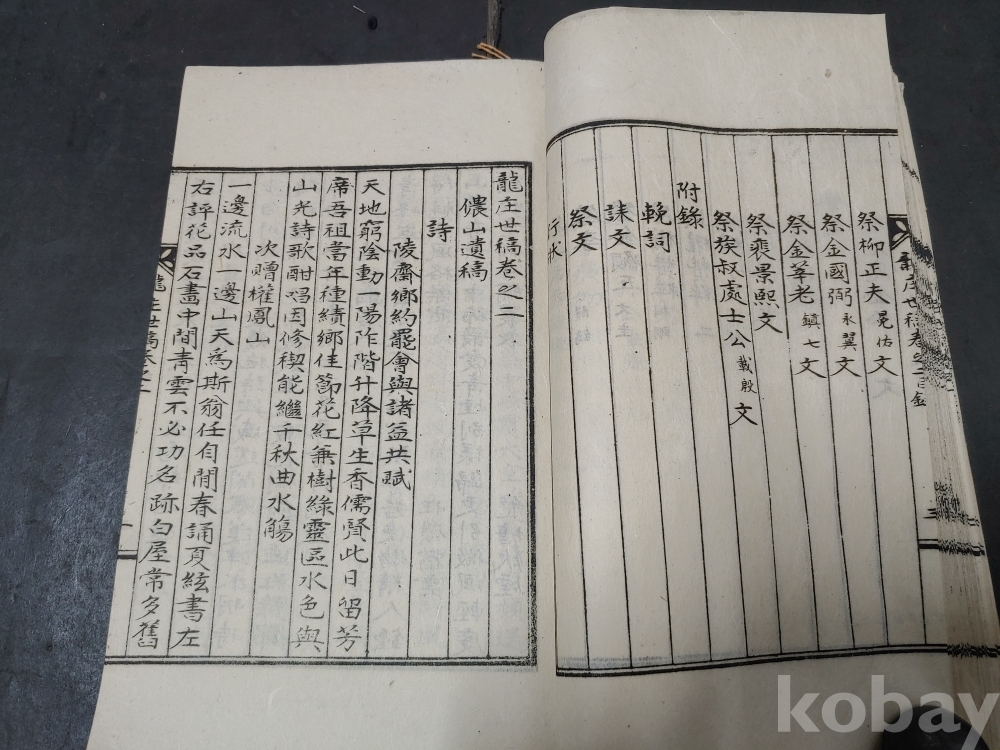 祭柳正夫冕佑文
祭金國弼永翼文
祭金莘老鎮七文
祭裵景熙文
祭族叔處士公載殷文
附錄
輓詞
誄文
祭文
行狀
龍庄世稿卷之二
儂山遺稿
詩
陵齋鄉約罷會與諸益共賦
天地窮陰動一陽阼階升降草生香儒賢此日留芳
席吾祖當年種績鄉佳節花紅兼樹綠靈區水色與
山光詩歌酣唱因修禊能繼千秋曲水觴
次贈權鳳山
一邊流水一邊山天為斯翁任自閒春誦頁絃書左
右評花品石畫中間青雲不必功名跡白屋常多舊
kobay